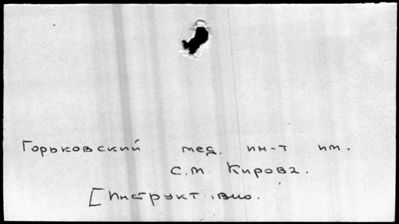 Горьковский мед. ин-т им.
С.М. Кирова.
[Инструкт. вио.